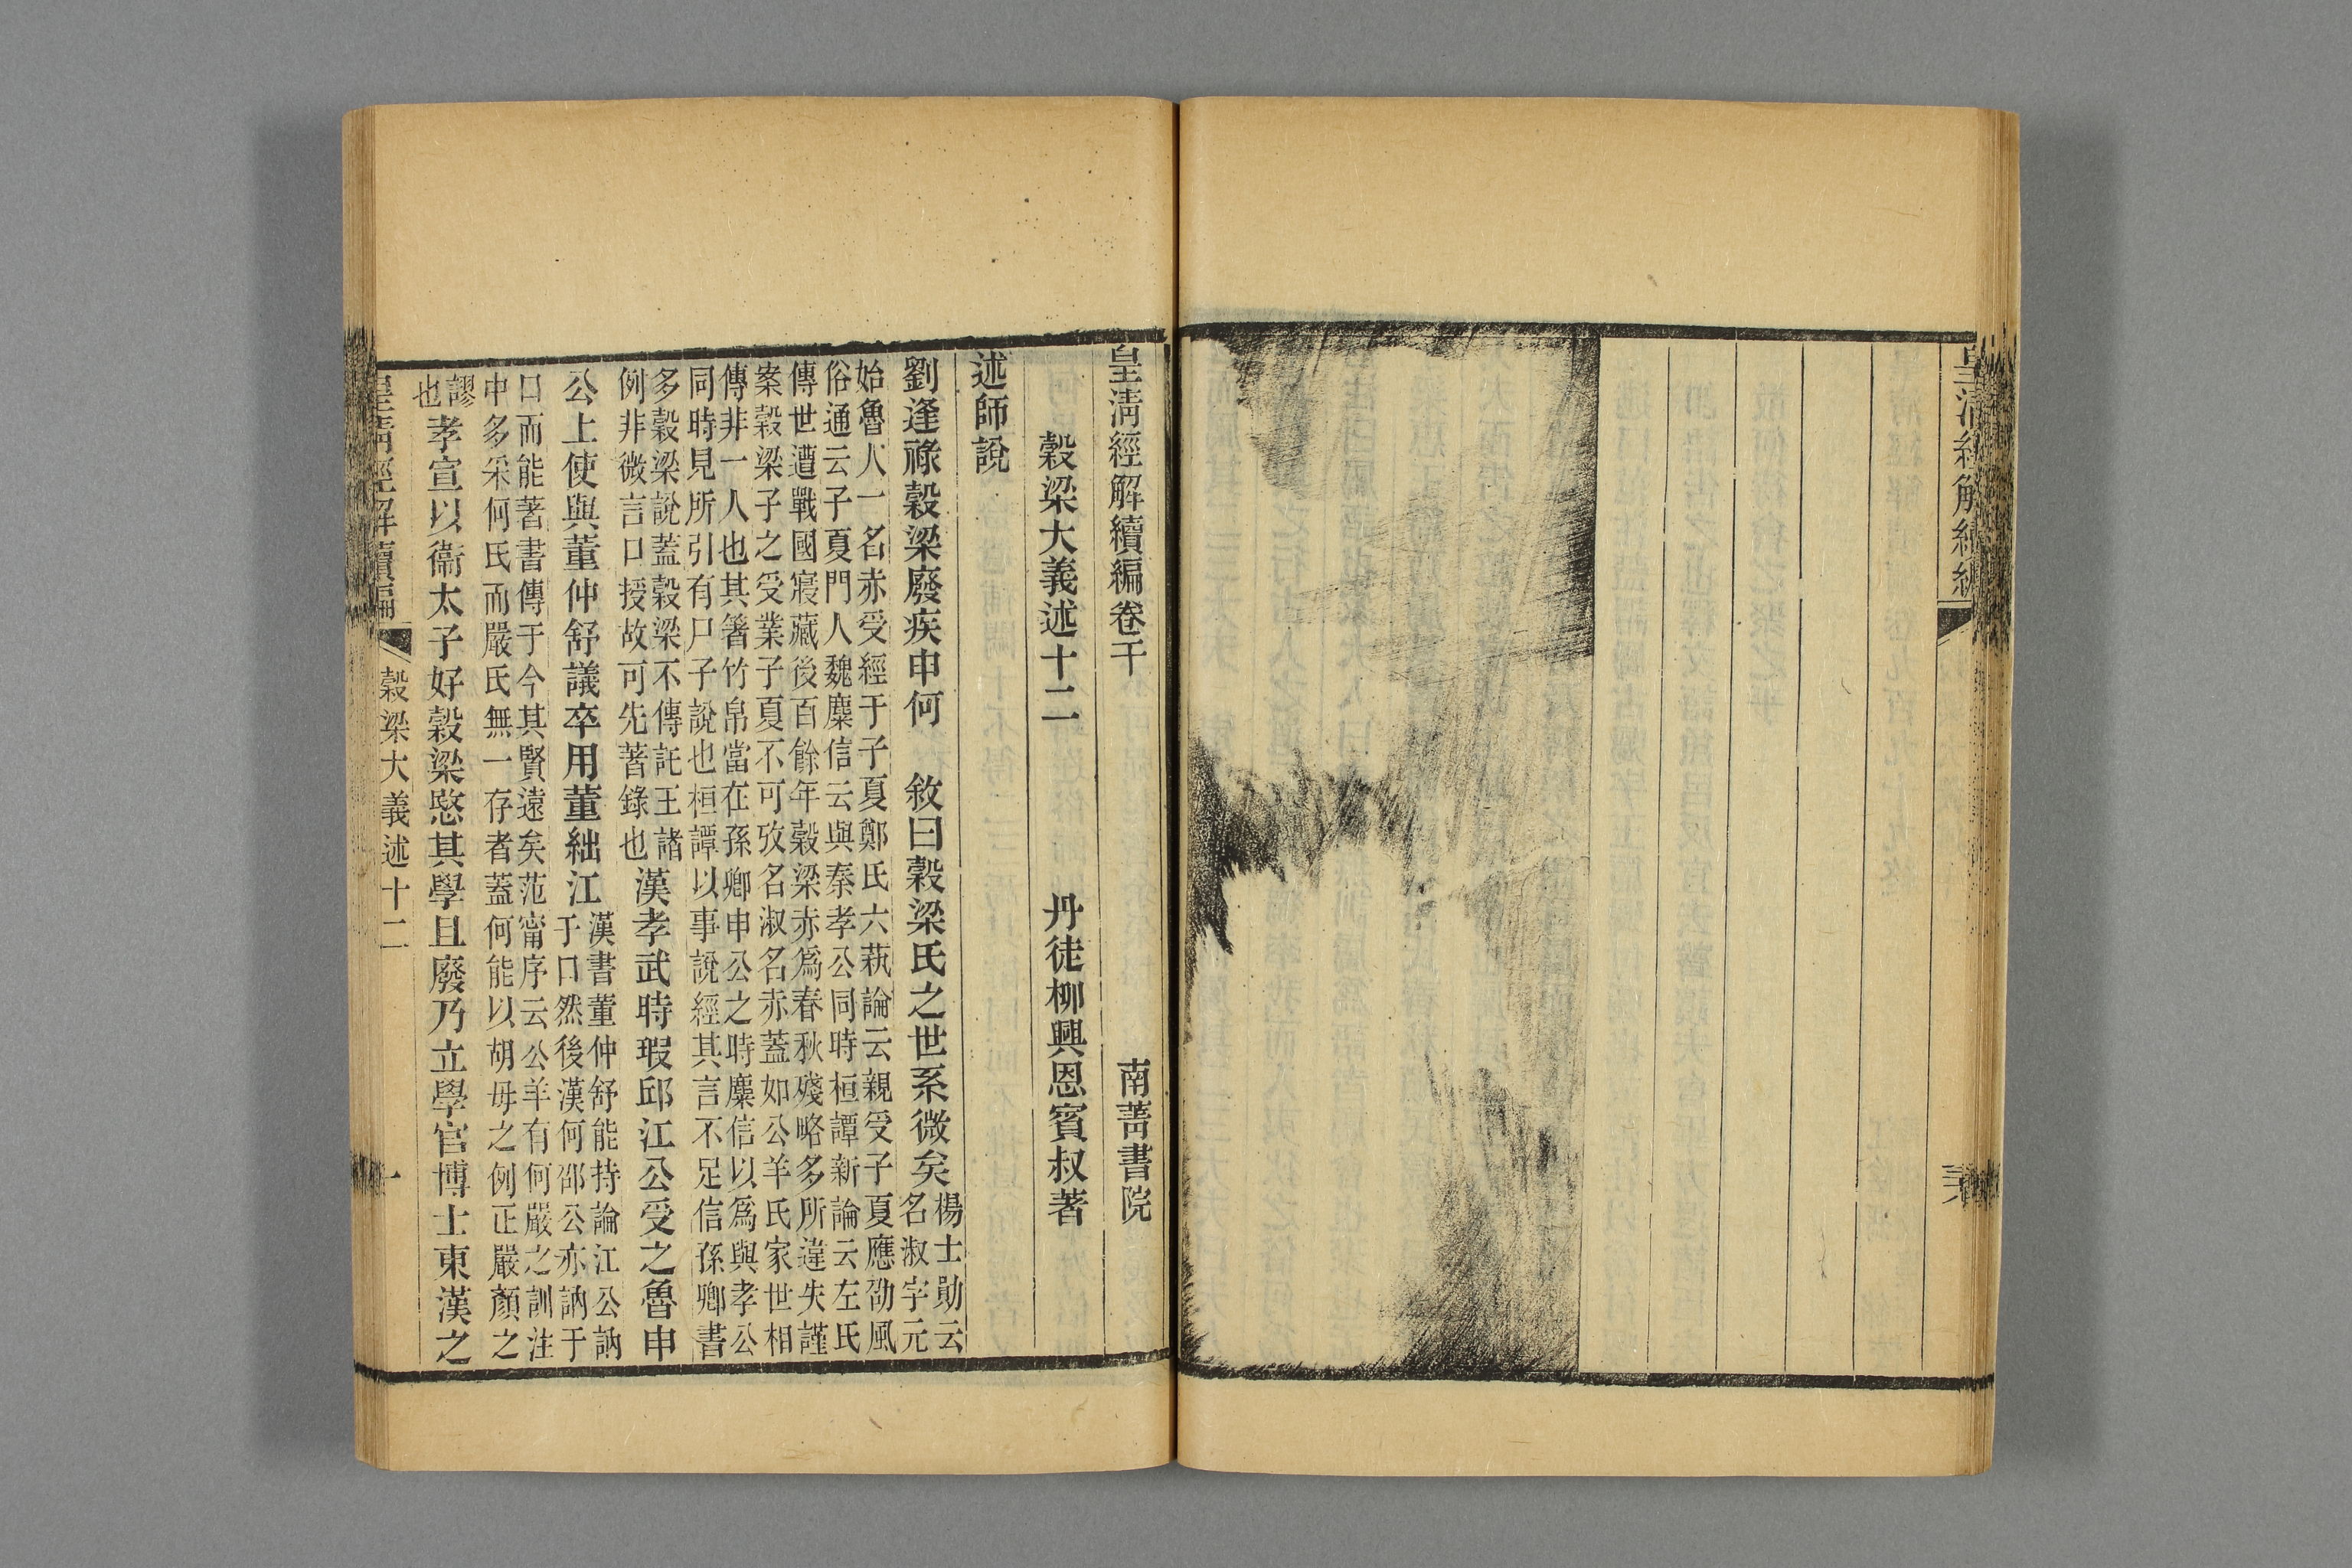 皇清經解續編
皇清經解續編卷千 南菁書院
穀梁大義述十二 丹徒柳興恩賓叔著
述師說
劉逢祿穀梁廢疾申何 敘曰穀梁氏之世系微矣楊士勛云
名淑字元
始魯人一名赤受經于子夏鄭氏六蓺論云親受子夏應劭風
俗通云子夏門人魏麋信云與秦孝公同時桓譚新論云左氏
傳世遭戰國寢藏後百餘年穀梁赤爲春秋殘略多所違失謹
案穀梁子之受業子夏不可攷名淑名赤蓋如公羊氏家世相
傳非一人也其箸竹帛當在孫卿申公之時麋信以爲與孝公
同時見所引有尸子說也桓譚以事說經其言不足信孫卿書
多穀梁說蓋穀梁不傳託王諸
例非微言口授故可先著錄也漢孝武時瑕邱江公受之魯申
公上使與董仲舒議卒用董絀江漢書董仲舒能持論江公訥
于口然後漢何邵公亦訥于
口而能著書傳于今其賢遠矣范甯序云公羊有何嚴之訓注
中多采何氏而嚴氏無一存者蓋何能以胡毋之例正嚴顏之
謬
也孝宣以衞太子好穀梁愍其學且廢乃立學官博士東漢之
皇清經解續編 穀梁大義述十二 一